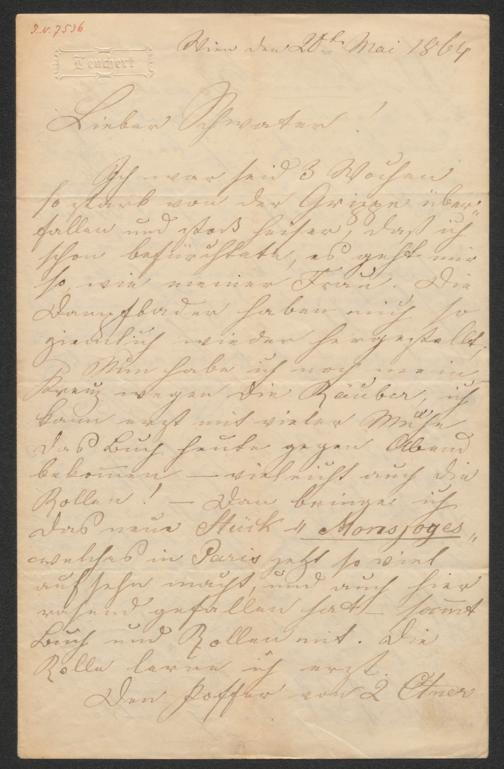 I.N. 7536
Teuchert
Wien den 20t Mai 1864
Lieber Schwater!
Ich war seid 3 Wochen
so stark von der Grippe über-
fallen und stock heiser, daß ich
schon befürchtete, es geht mir
so, wie meiner Frau. Die
Dampfbäder haben mich so
ziemlich wieder hergestellt.
Nun habe ich noch mein
Kreuz wegen die Räuber, ich
kann erst mit vieler Mühe
das Buch heute gegen Abend
bekommen – vieleicht auch die
Rollen! – Dan bringe ich
das neue Stück „Monsjoges“
welches in Paris jetzt so viel
aufsehn macht, und auch hier
rasend gefallen hat – sammt
Buch und Rollen mit. Die
Rolle lerne ich erst.
Den Koffer von 2 Ctner